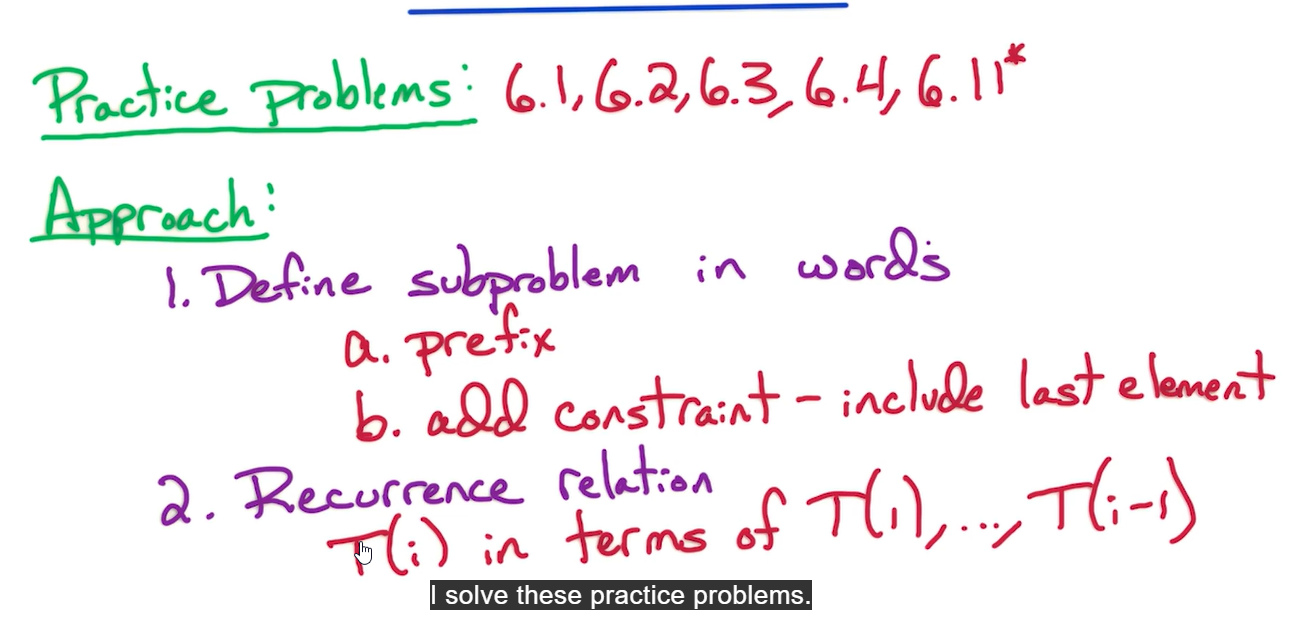 Practice problems: 6.1, 6.2, 6.3, 6.4, 6.11*
Approach:
1. Define subproblem in words
a. prefix
b. add constraint - include last element
2. Recurrence relation
T(i) in terms of T(1), ..., T(i-1)
I solve these practice problems.